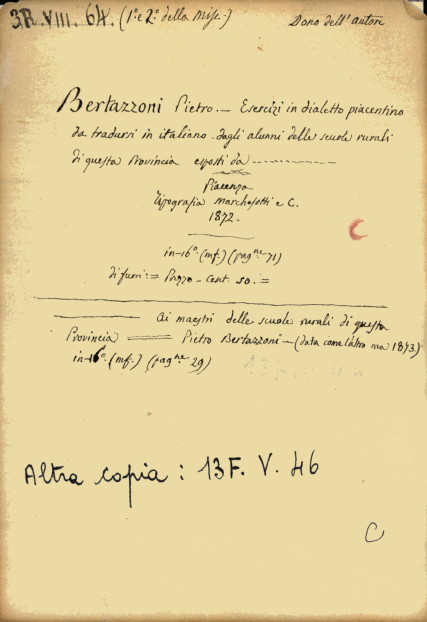 3R.VIII. 64. (1ª e 2ª della Misc.) Dono dell'autore
Bertazzoni Pietro. — Esercizi in dialetto piacentino
da tradursi in italiano dagli alunni delle scuole rurali
di questa Provincia esposti da ----------
Piacenza
Tipografia Marchesotti e C.
1872.
in-16º. (mf.) (pagne 71)
di fuori := Prezzo - Cent. 50. :=
——— Ai maestri delle scuole rurali di questa
Provincia ═══ Pietro Bertazzoni — (data come l'altro ma 1873)
in-16º (mf.) (pagne 29)
Altra copia : 13F. V. 46
C